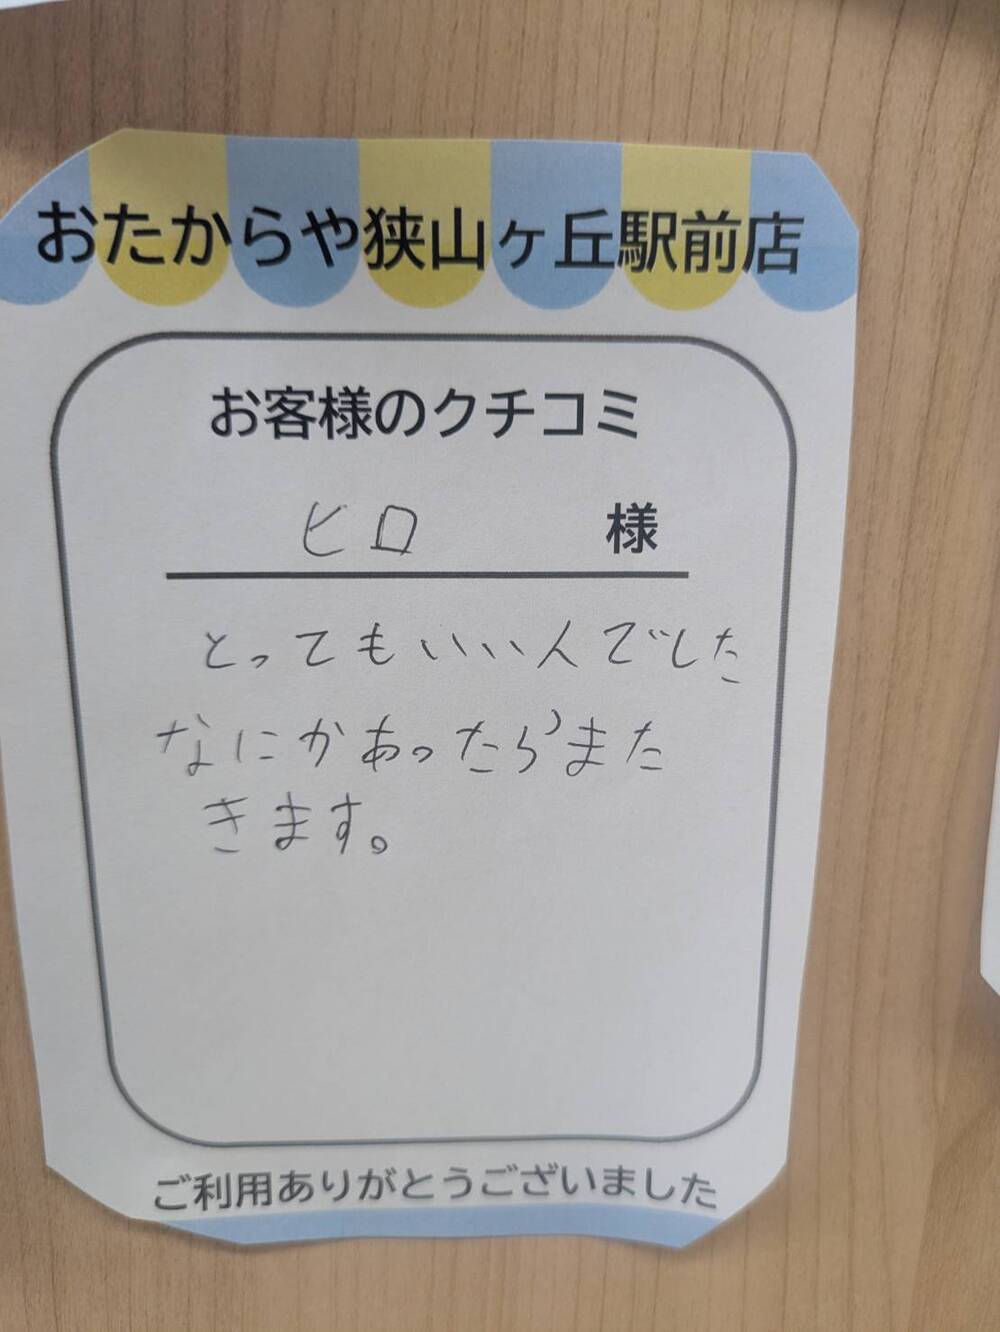 おたからや狭山ヶ丘駅前店
お客様のクチコミ
ヒロ 様
とってもいい人でした
なにかあったらまた
きます。
ご利用ありがとうございました